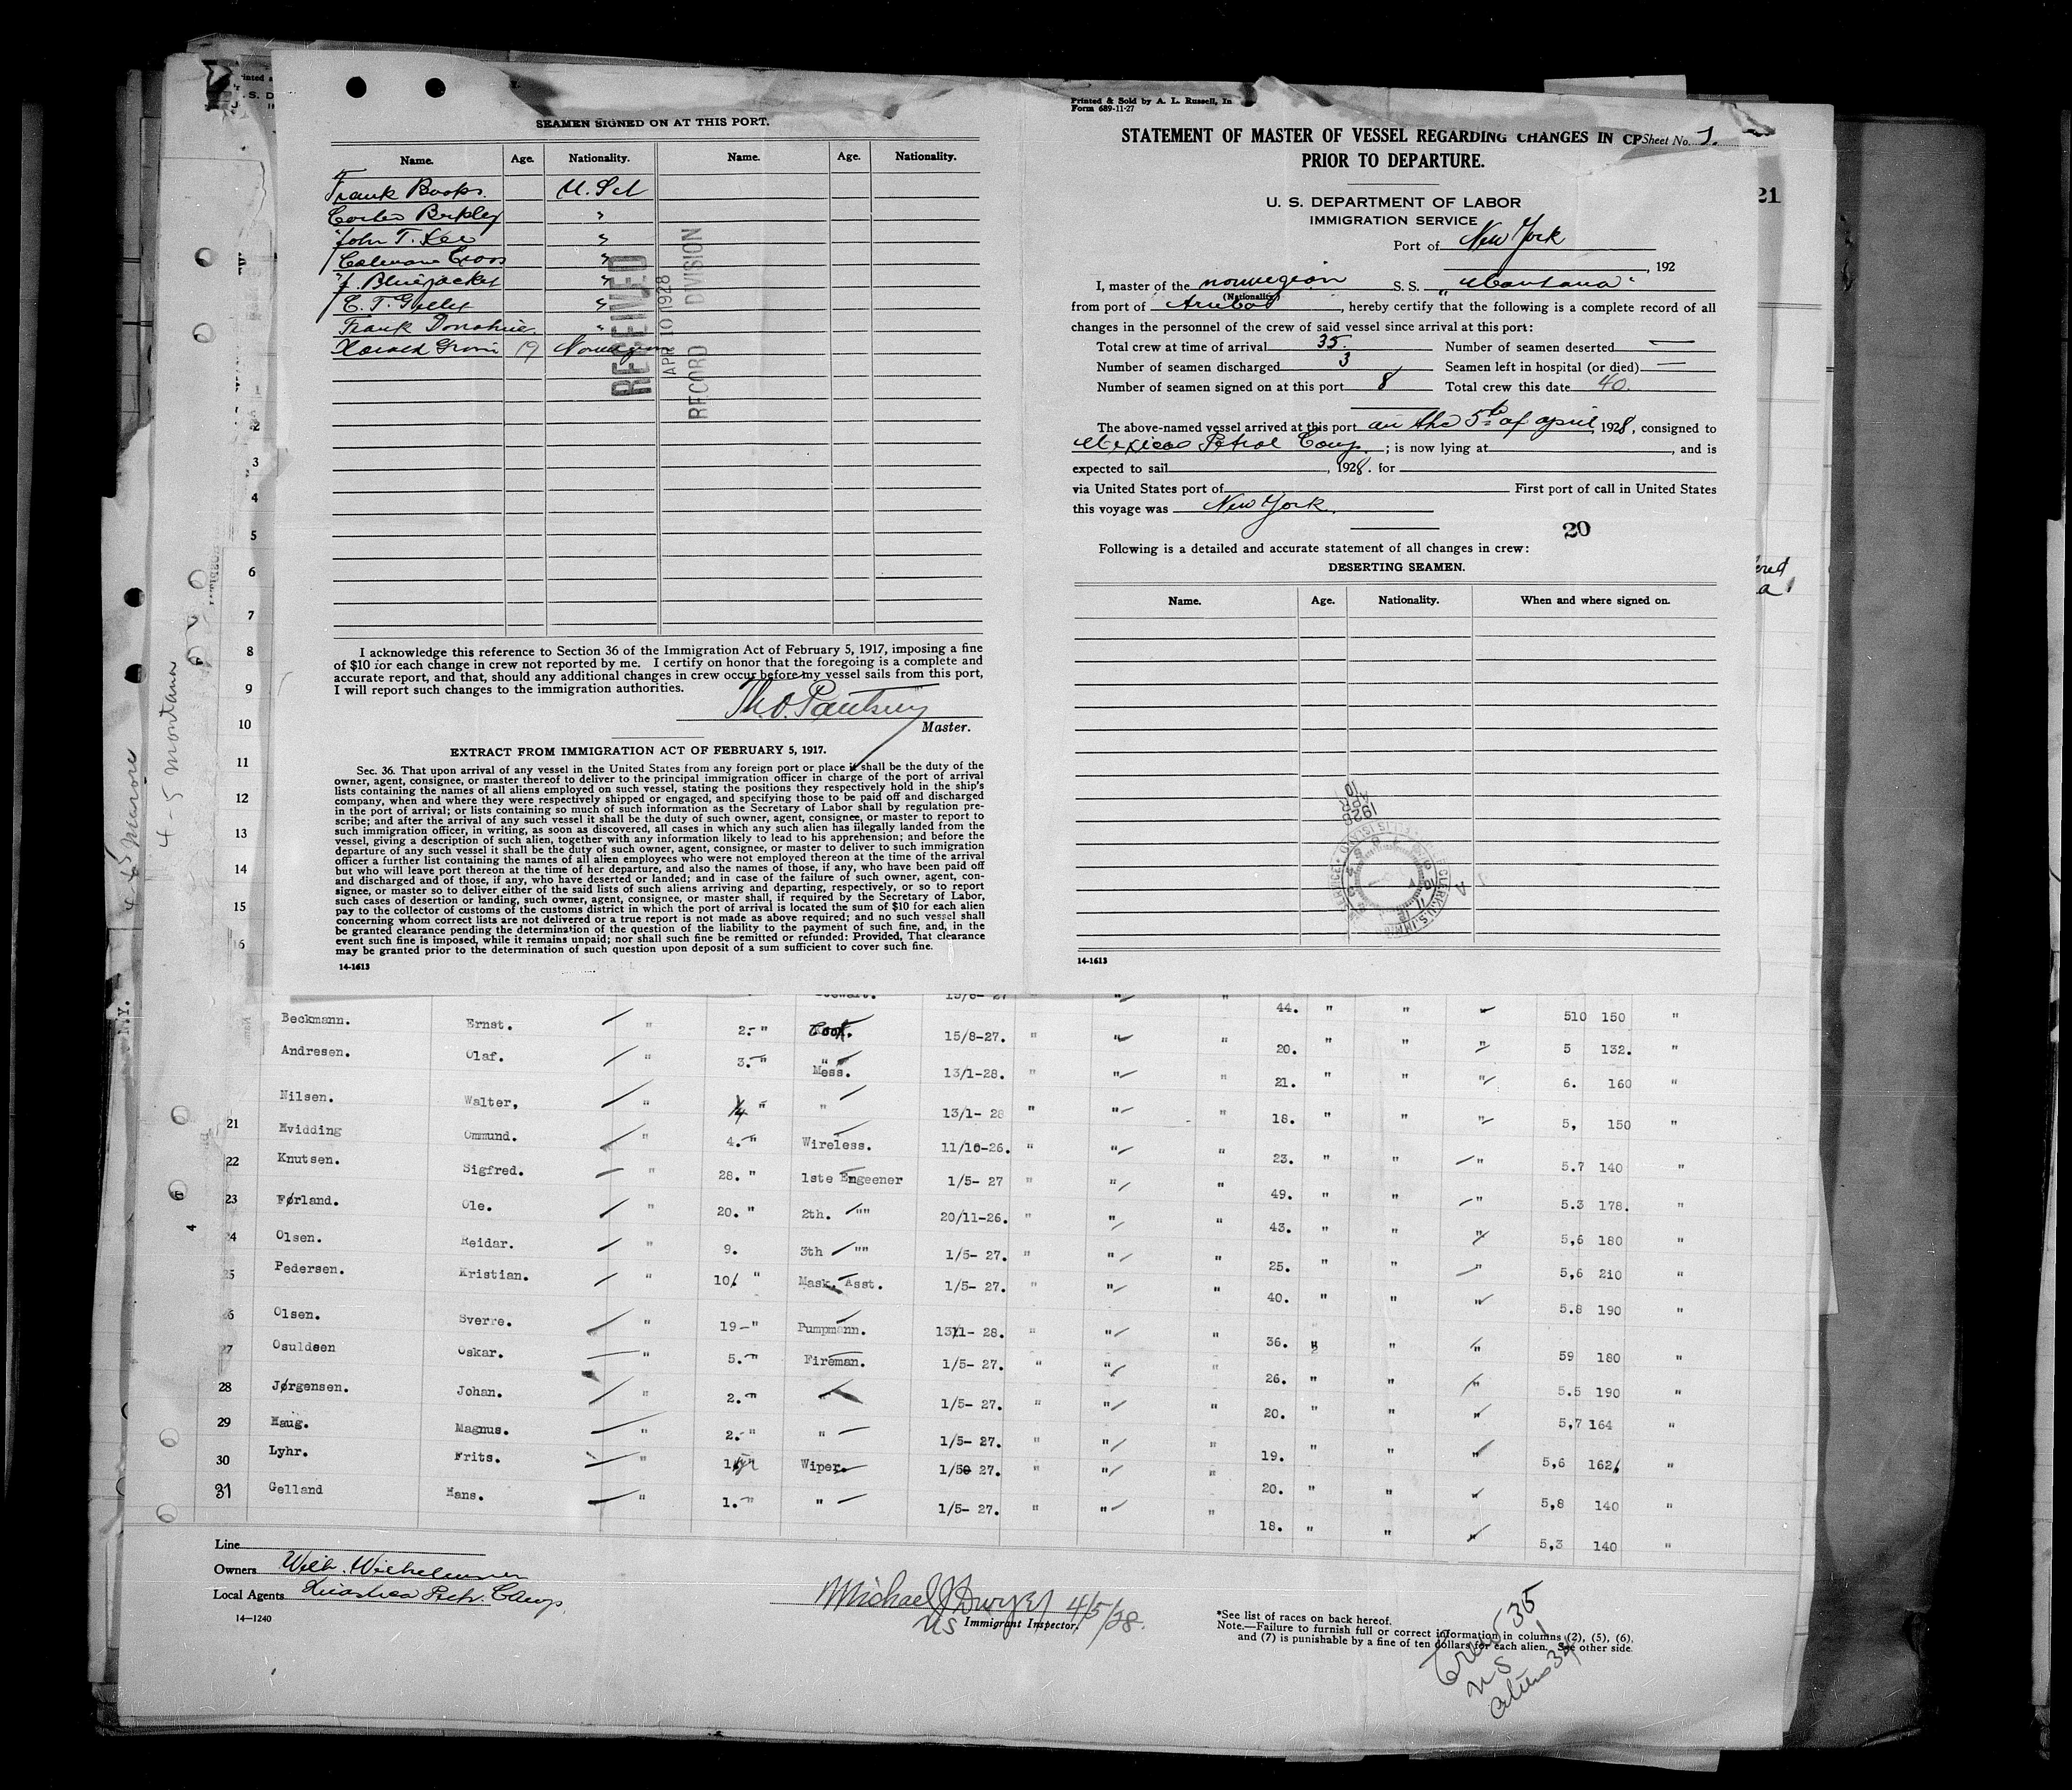 SEAMEN SIGNED ON AT THIS PORT.
Name. Age. Nationality. Name. Age. Nationality.
Frank U.S.A
"
John T. "
"
J. Bluejacket "
C. T. "
Frank Donahue "
Harald 19 Norwegian
RECEIVED
APR 10 1928
RECORD DIVISION
I acknowledge this reference to Section 36 of the Immigration Act of February 5, 1917, imposing a fine
of $10 for each change in crew not reported by me. I certify on honor that the foregoing is a complete and
accurate report, and that, should any additional changes in crew occur before my vessel sails from this port,
I will report such changes to the immigration authorities.
Master.
EXTRACT FROM IMMIGRATION ACT OF FEBRUARY 5, 1917.
Sec. 36. That upon arrival of any vessel in the United States from any foreign port or place it shall be the duty of the
owner, agent, consignee, or master thereof to deliver to the principal immigration officer in charge of the port of arrival
lists containing the names of all aliens employed on such vessel, stating the positions they respectively hold in the ship's
company, when and where they were respectively shipped or engaged, and specifying those to be paid off and discharged
in the port of arrival; or lists containing so much of such information as the Secretary of Labor shall by regulation pre-
scribe; and after the arrival of any such vessel it shall be the duty of such owner, agent, consignee, or master to report to
such immigration officer, in writing, as soon as discovered, all cases in which any such alien has illegally landed from the
vessel, giving a description of such alien, together with any information likely to lead to his apprehension; and before the
departure of any such vessel it shall be the duty of such owner, agent, consignee, or master to deliver to such immigration
officer a further list containing the names of all alien employees who were not employed thereon at the time of the arrival
but who will leave port thereon at the time of her departure, and also the names of those, if any, who have been paid off
and discharged and of those, if any, who have deserted or landed; and in case of the failure of such owner, agent, con-
signee, or master so to deliver either of the said lists of such aliens arriving and departing, respectively, or so to report
such cases of desertion or landing, such owner, agent, consignee, or master shall, if required by the Secretary of Labor,
pay to the collector of customs of the customs district in which the port of arrival is located the sum of $10 for each alien
concerning whom correct lists are not delivered or a true report is not made as above required; and no such vessel shall
be granted clearance pending the determination of the question of the liability to the payment of such fine, and, in the
event such fine is imposed, while it remains unpaid; nor shall such fine be remitted or refunded: Provided, That clearance
may be granted prior to the determination of such question upon deposit of a sum sufficient to cover such fine.
14-1613
Printed & Sold by A. L. Russell, In
Form 689-11-27
STATEMENT OF MASTER OF VESSEL REGARDING CHANGES IN CP Sheet No. 1.
PRIOR TO DEPARTURE.
U. S. DEPARTMENT OF LABOR
IMMIGRATION SERVICE
Port of New York
, 192
I, master of the norwegian S. S. "Montana"
(Nationality)
from port of Aruba, hereby certify that the following is a complete record of all
changes in the personnel of the crew of said vessel since arrival at this port:
Total crew at time of arrival 35. Number of seamen deserted —
Number of seamen discharged 3 Seamen left in hospital (or died) —
Number of seamen signed on at this port 8 Total crew this date 40.
The above-named vessel arrived at this port on the 5th of april, 1928, consigned to
Mexican Petrol Comp.; is now lying at , and is
expected to sail , 1928. for
via United States port of First port of call in United States
this voyage was New York.
20
Following is a detailed and accurate statement of all changes in crew:
DESERTING SEAMEN.
Name. Age. Nationality. When and where signed on.
1928
APR
10
14-1613
21
4-5 Montana
2
3
4
5
6
7
8
9
10
11
12
13
14
15
16
44. " "
Beckmann. Ernst. " 2.-" Cook. 15/8-27. " " " 20. " " " 510 150 "
Andresen. Olaf. " 3.-" Mess. 13/1-28. " " " 21. " " " 5 132. "
Nilsen. Walter, " 4 " " 13/1- 28 " " " 18. " " " 6. 160 "
21 Hvidding Ommund. " 4.-" Wireless. 11/10-26. " " " 23. " " " 5, 150 "
22 Knutsen. Sigfred. " 28. " 1ste Engeener 1/5- 27 " " " 49. " " " 5.7 140 "
23 Førland. Ole. " 20. " 2th. "" 20/11-26. " " " 43. " " " 5.3 178. "
24 Olsen. Reidar. " 9. 3th "" 1/5- 27. " " " 25. " " " 5,6 180 "
25 Pedersen. Kristian. " 10 " Mask. Asst. 1/5- 27. " " " 40. " " " 5,6 210 "
26 Olsen. Sverre. " 19-" Pumpmann. 13/1- 28. " " " 36. " " " 5.8 190 "
27 Osuldsen Oskar. " 5.-" Fireman. 1/5- 27. " " " 26. " " " 59 180 "
28 Jørgensen. Johan. " 2.-" " 1/5- 27. " " " 20. " " " 5.5 190 "
29 Haug. Magnus. " 2.-" " 1/5- 27. " " " 19. " " " 5,7 164 "
30 Lyhr. Frits. " Wiper. 1/5- 27. " " " 20. " " " 5,6 162 "
31 Gelland Hans. " 1.-" " 1/5- 27. " " " 18. " " " 5,8 140 "
5,3 140 "
Line
Owners Wilh. Wilhelmsen
Local Agents Petr. Comp.
14—1240
Michael J Dwyer 4/5/28.
US Immigrant Inspector.
*See list of races on back hereof.
Note.—Failure to furnish full or correct information in columns (2), (5), (6),
and (7) is punishable by a fine of ten dollars for each alien. See other side.
Crew 35
US 1
aliens 34